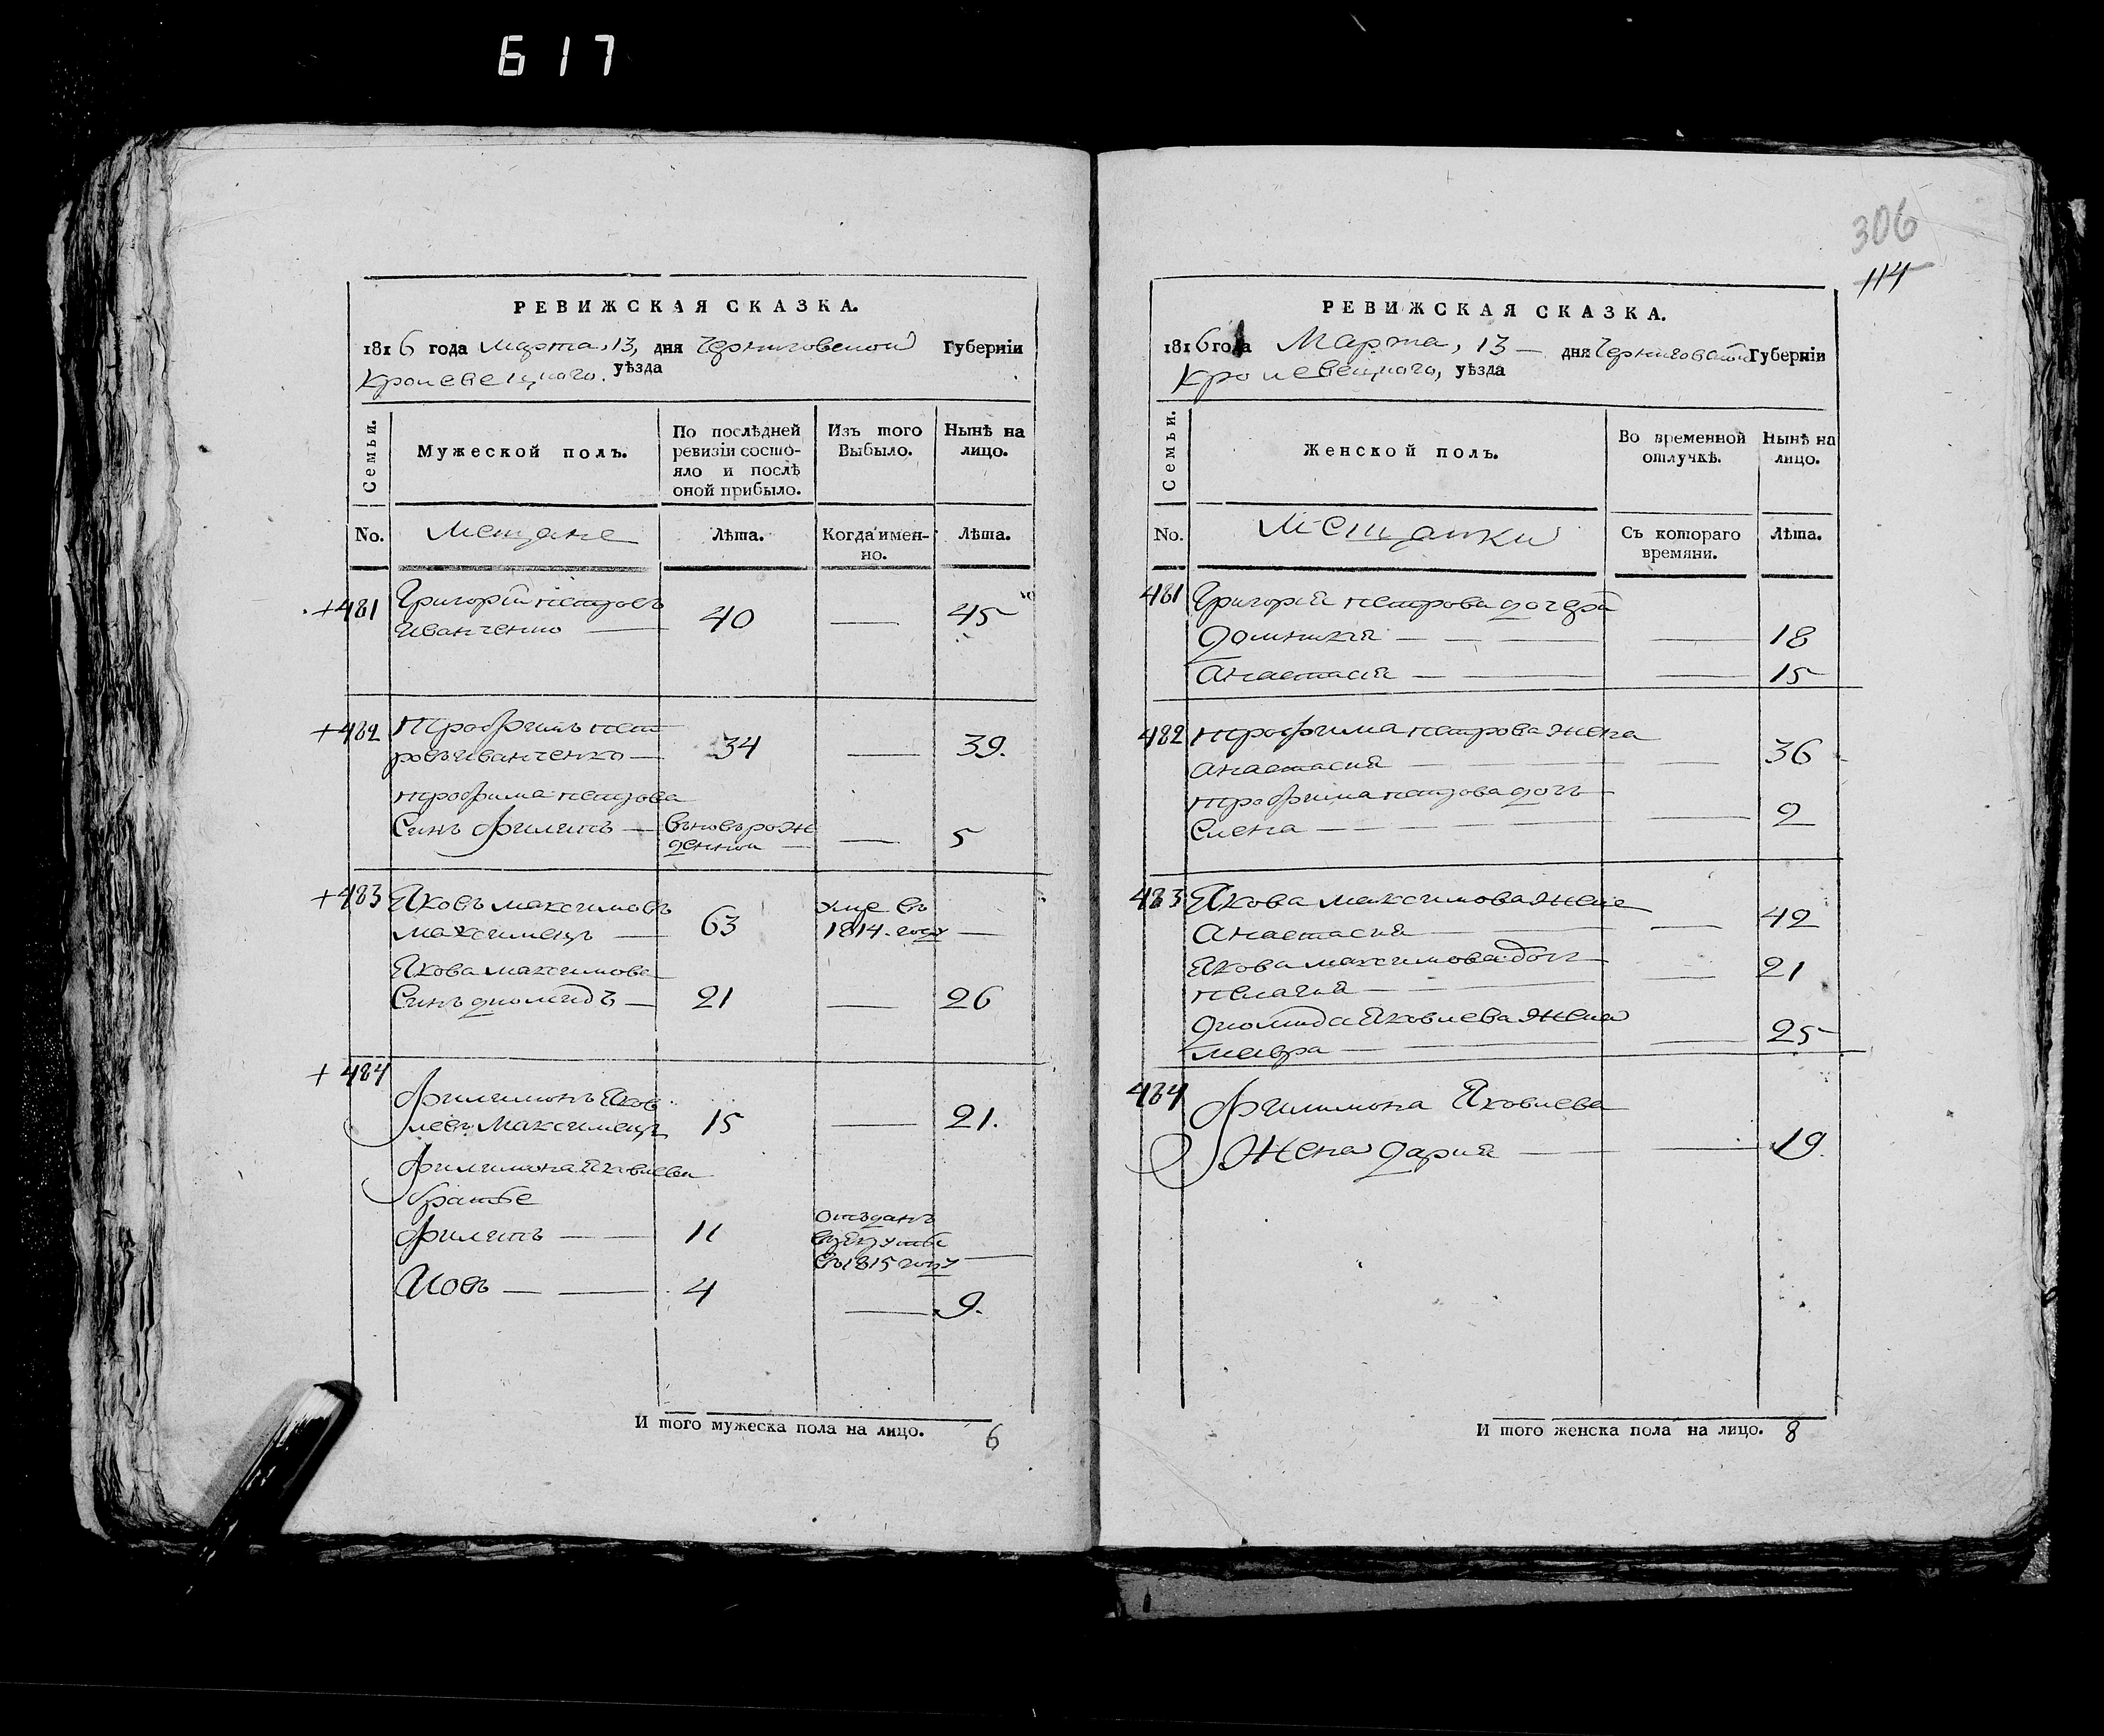 617
РЕВИЖСКАЯ СКАЗКА.
1816 года Марта, 13, дня Черниговской Губерніи
Кролевецкого. уѣзда
Семьи.
Мужеской полъ.
По послѣдней
ревизіи состо-
яло и послѣ
оной прибыло.
Изъ того
Выбыло.
Нынѣ на
лицо.
No.
Мещане
Лѣта.
Когда имен-
но.
Лѣта.
+481 Григорій Петровъ
Иванченко — 40 — 45
+482 Трофимъ Пет
ровъ Иванченко — 34 — 39.
Трофима Петрова
Синъ Филипъ — вновь рож
денной — — 5
+483 Яковъ Максимовъ
Максимецъ — 63 уме въ
1814. году —
Якова Максимова
Синъ Диомидъ — 21 — 26
+484
Филимонъ Яков
левъ Максимецъ 15 — 21.
Филимона Яковлева
братье
Филипъ — — 11 отъданъ
в рекруты
въ 1815 году —
Иовъ — — 4 — 9.
И того мужеска пола на лицо. 6
306
114
РЕВИЖСКАЯ СКАЗКА.
1816 года Марта, 13 — дня Черниговской Губерніи
Кролевецкого, уѣзда
Семьи.
Женской полъ.
Во временной
отлучкѣ.
Нынѣ на
лицо.
No.
Мещанки
Съ котораго
времяни.
Лѣта.
481 Григорія Петрова дочери
Домникія — — — 18
Анастасія — — — 15
482 Трофима Петрова жена
Анастасия — — — 36
Трофима Петрова дочь
Елена — — — 2
483 Якова Максимова жена
Анастасия — — — 42
Якова Максимова дочь
Пелагия — — — 21
Диомида Яковлева жена
Мавра — — — 25
484 Филимона Яковлева
Жена Дария — — — 19.
И того женска пола на лицо. 8